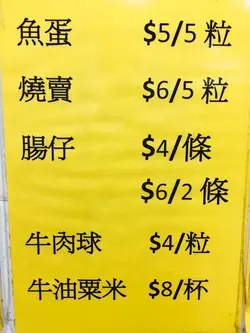 魚蛋 $5/5 粒
燒賣 $6/5 粒
腸仔 $4/條
$6/2 條
牛肉球 $4/粒
牛油粟米 $8/杯